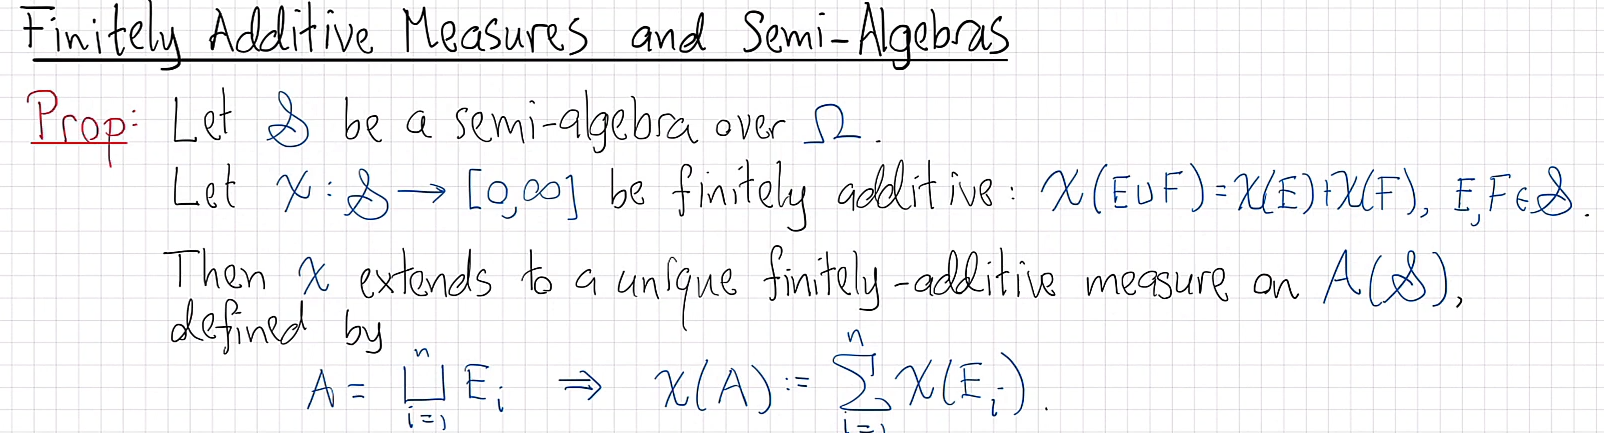 Finitely Additive Measures and Semi-Algebras
Prop: Let 𝒮 be a semi-algebra over Ω.
Let χ : 𝒮 → [0,∞] be finitely additive: χ(E∪F)=χ(E)+χ(F), E,F∈𝒮.
Then χ extends to a unique finitely-additive measure on A(𝒮),
defined by
A = ⨆_{i=1}^{n} E_i ⇒ χ(A) := ∑_{i=1}^{n} χ(E_i).